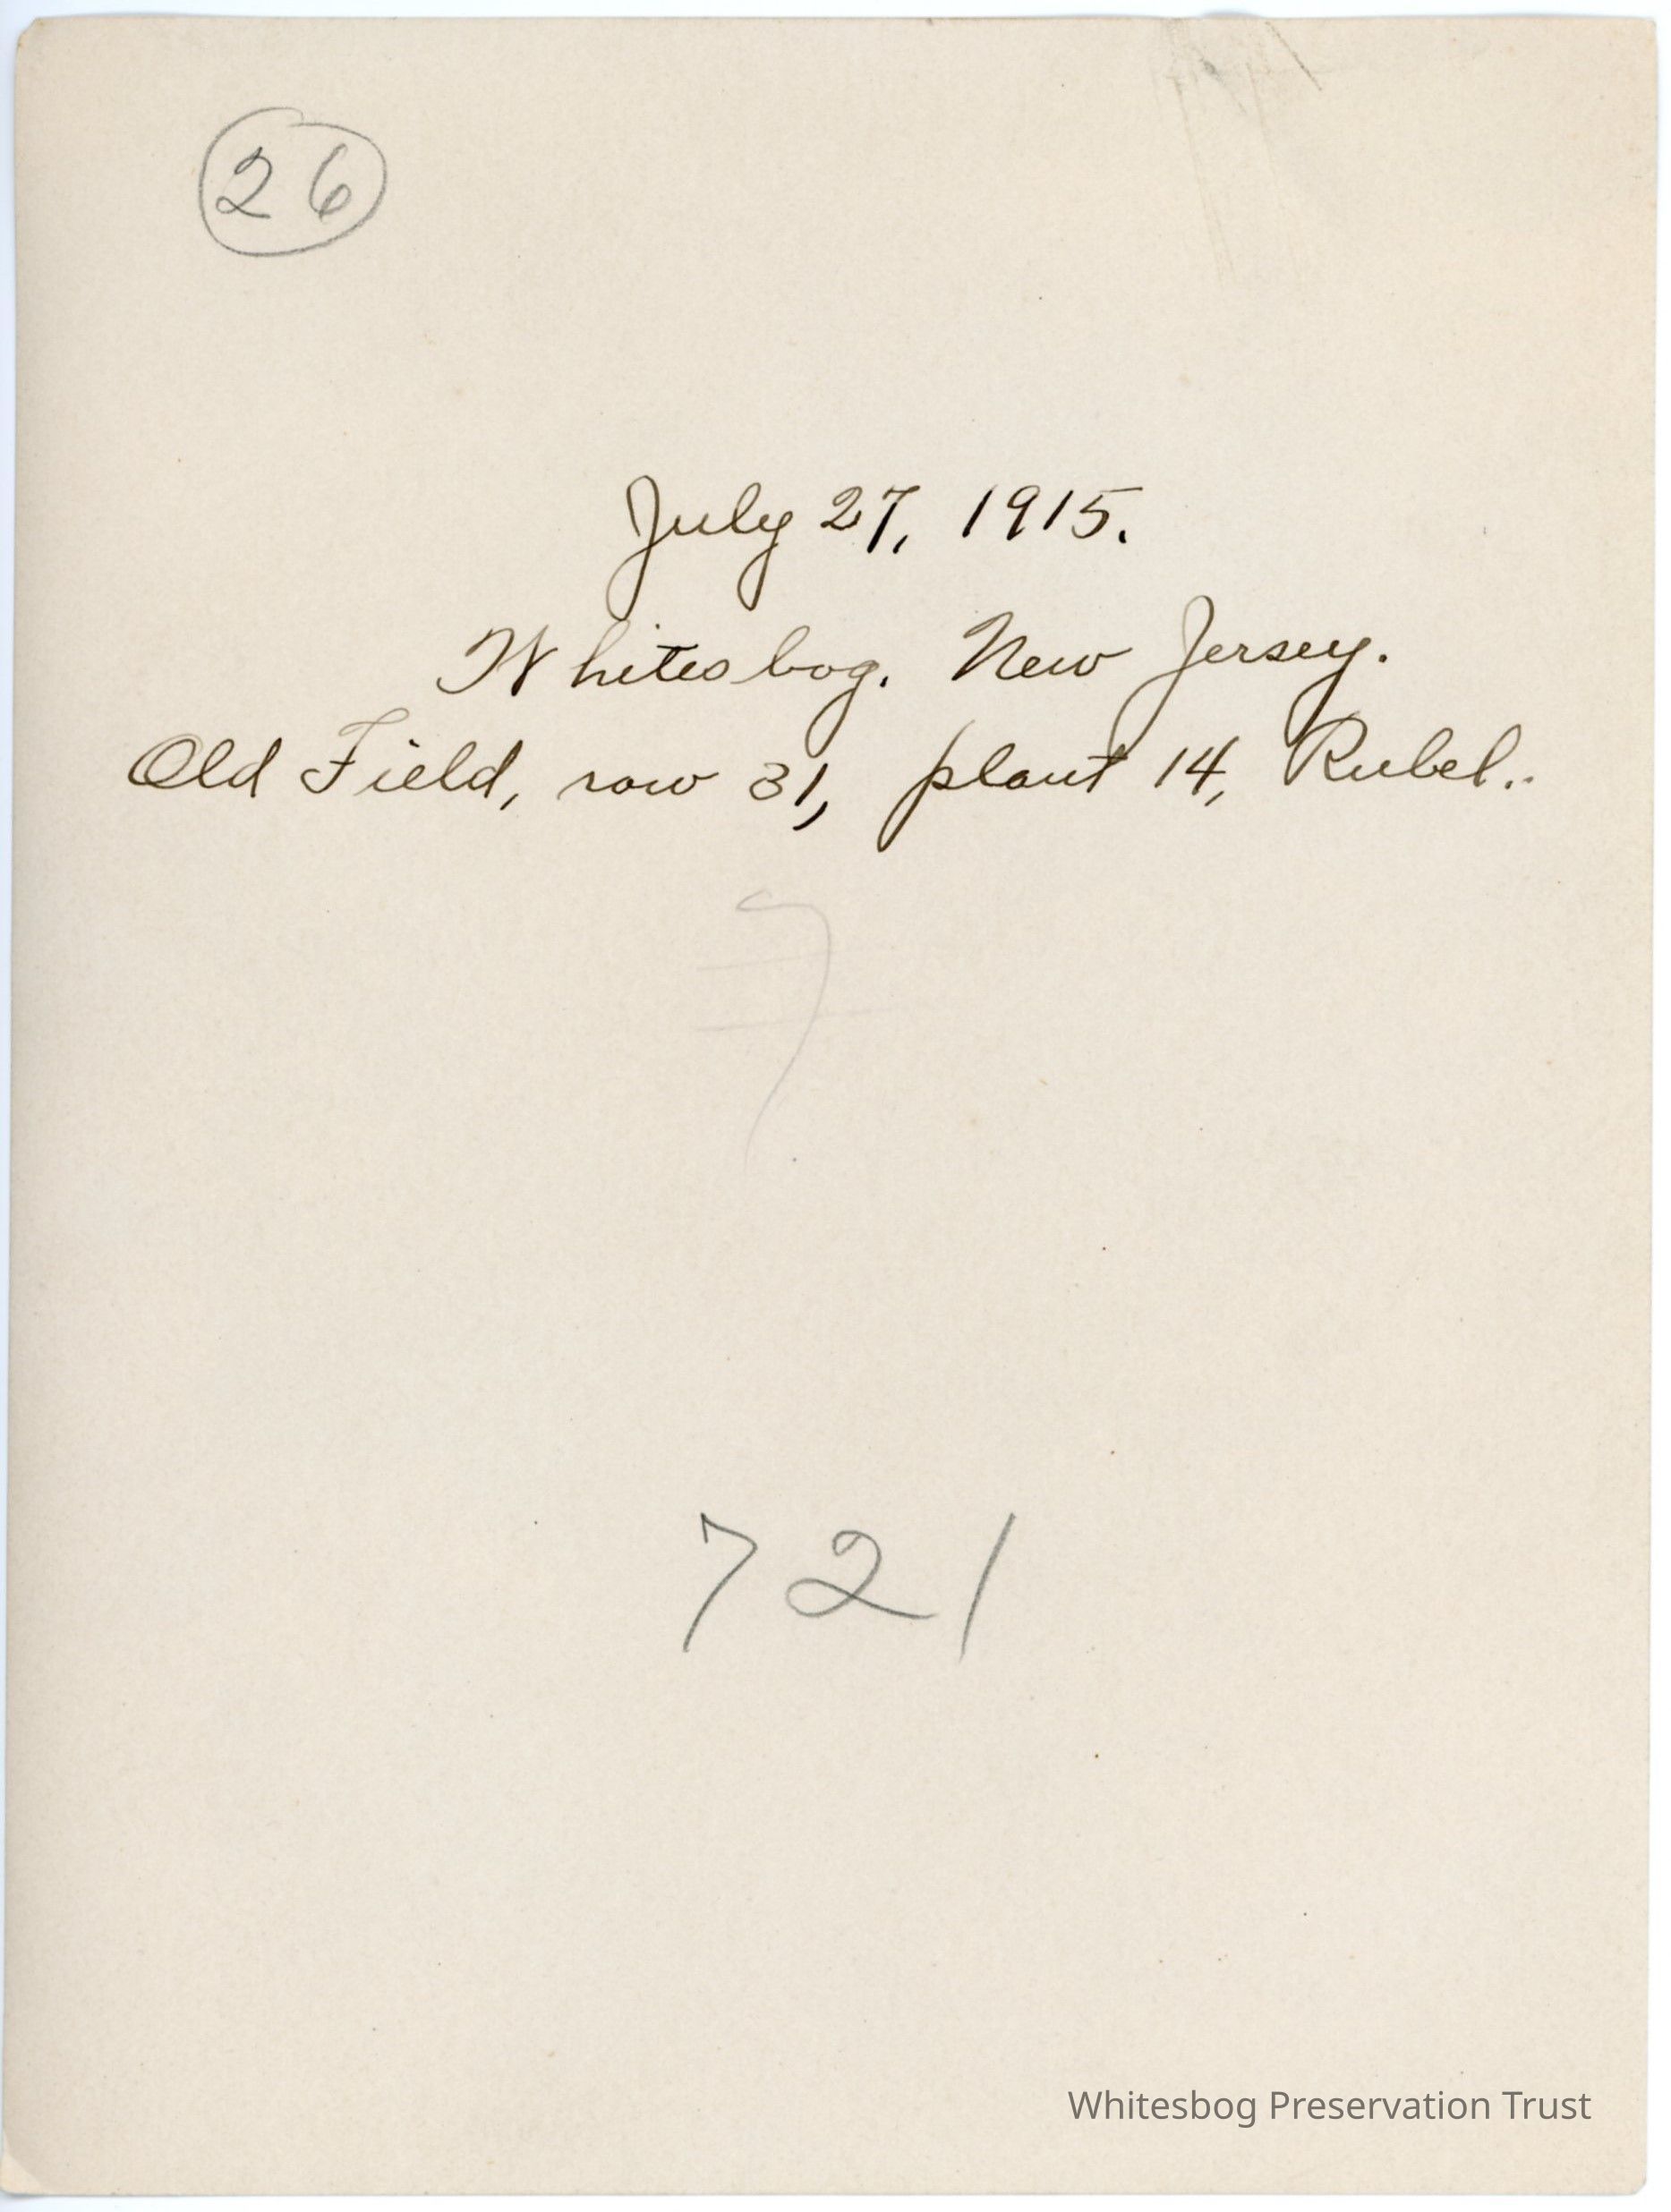 26
July 27, 1915.
Whitesbog. New Jersey.
Old Field, row 31, plant 14, Rubel..
7
721
Whitesbog Preservation Trust